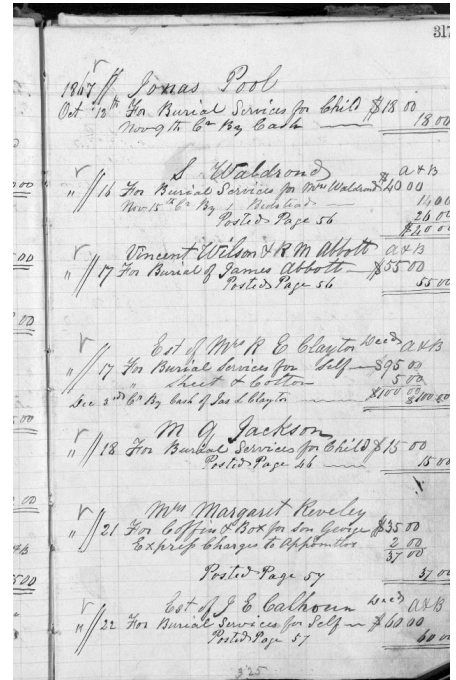 317
1867 // Jonas Pool
Oct 12th For Burial Services for Child $18 00
Nov 9th Cr By Cash 18 00
S. Waldrond A & B
" // 16 For Burial Services for Mrs Waldrond $40 00
Nov 15th Cr By 1 Bedstead 14 00
Posted Page 56 26 00
$40 00
Vincent Wilson & R M Abbott A & B
" // 17 For Burial of James Abbott $55 00
Posted Page 56 55 00
Est of Mrs R E Clayton Decd A & B
" // 17 For Burial Services for Self $95 00
" Sheet & Cotton 5 00
Dec 3rd Cr By Cash of Jas L Clayton $100 00 $100 00
M G Jackson
" // 18 For Burial Services for Child $15 00
Posted Page 46 15 00
Mrs Margaret Reveley
" // 21 For Coffin & Box for Son George $35 00
Express Charges to Appomattox 2 00
37 00
Posted Page 57 37 00
Est of J E Calhoun Decd A & B
" // 22 For Burial Services for Self $60 00
Posted Page 57 60 00
325